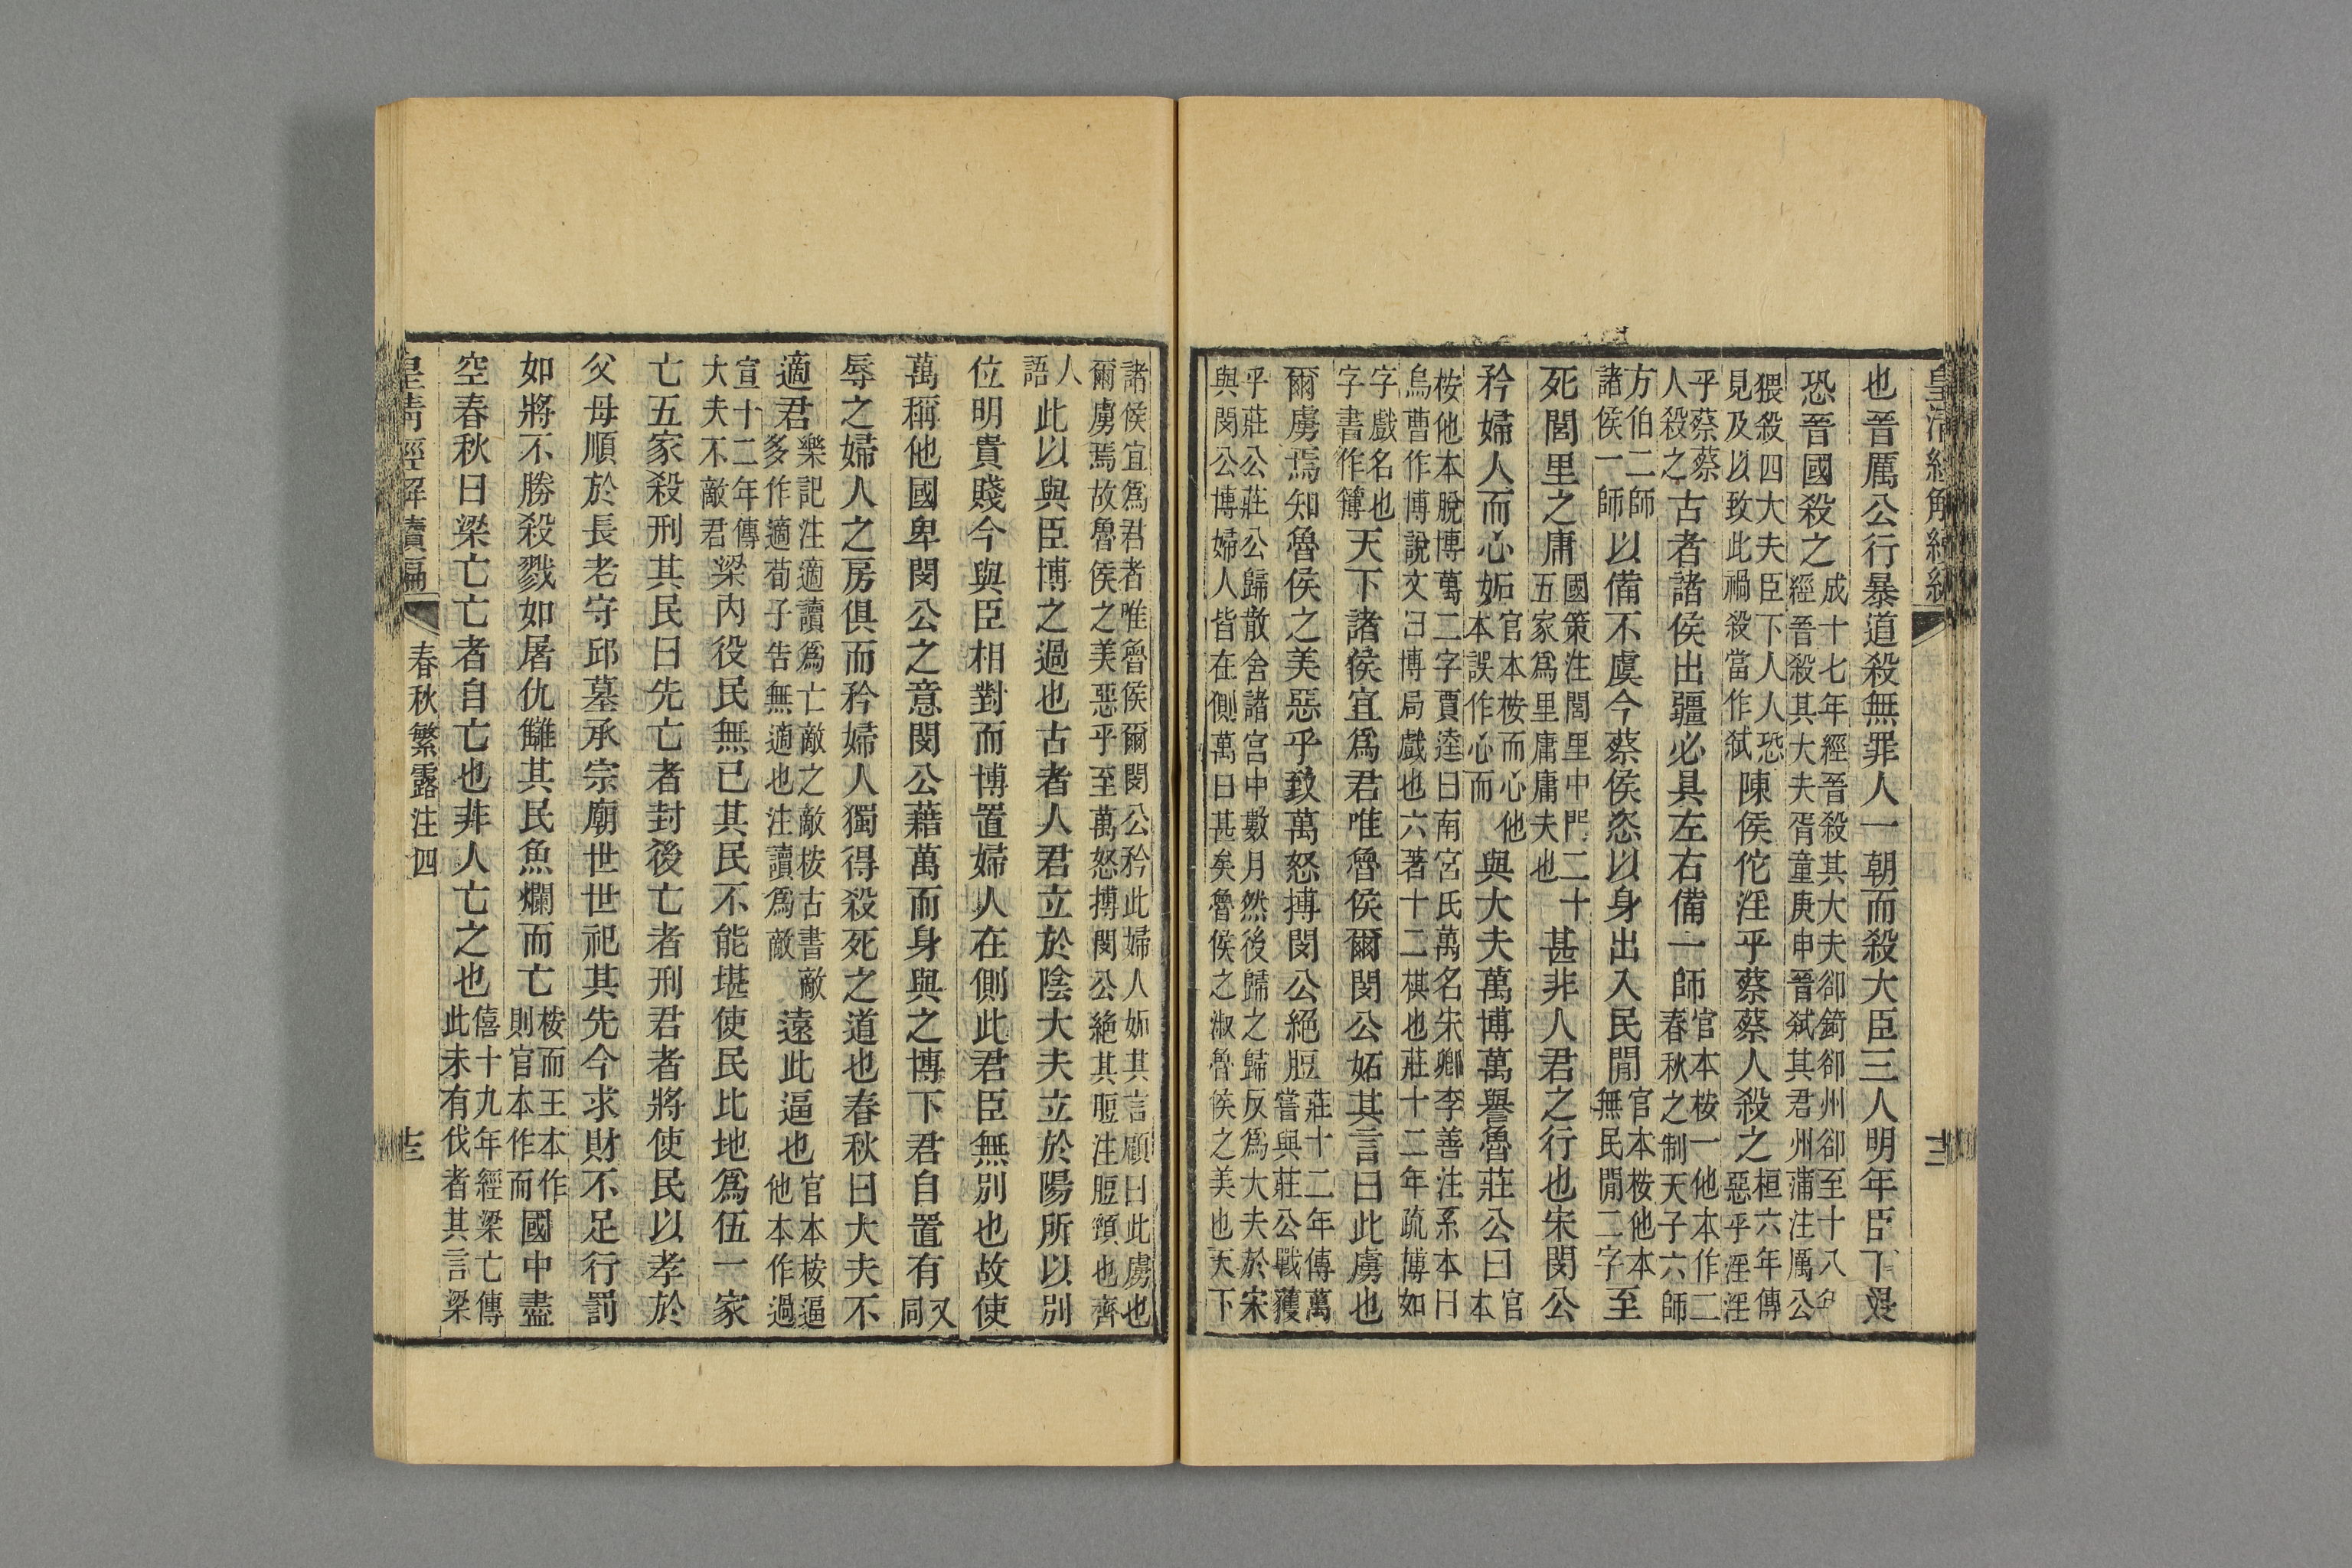 皇清經解續編
十二
也晉厲公行暴道殺無罪人一朝而殺大臣三人明年臣下畏
恐晉國殺之成十七年經晉殺其大夫卻錡卻州卻至十八年經晉殺其大夫胥童庚申晉弑其君州蒲注厲公
猥殺四大夫臣下人人恐見及以致此禍殺當作弑陳侯佗淫乎蔡蔡人殺之桓六年傳惡乎淫淫
乎蔡蔡人殺之古者諸侯出疆必具左右備一師官本桉一他本作二春秋之制天子六師
方伯二師諸侯一師以備不虞今蔡侯恣以身出入民閒官本桉他本無民閒二字至
死閭里之庸國策注閭里中門二十五家爲里庸庸夫也甚非人君之行也宋閔公
矜婦人而心妬官本桉而心他本誤作心而與大夫萬博萬譽魯莊公曰官本
桉他本脫博萬二字賈逵曰南宮氏萬名宋卿李善注系本曰烏曹作博說文曰博局戲也六著十二棋也莊十二年疏博如
字戲名也字書作簙天下諸侯宜爲君唯魯侯爾閔公妬其言曰此虜也
爾虜焉知魯侯之美惡乎致萬怒搏閔公絕脰莊十二年傳萬嘗與莊公戰獲
乎莊公莊公歸散舍諸宮中數月然後歸之歸反爲大夫於宋與閔公博婦人皆在側萬曰甚矣魯侯之淑魯侯之美也天下
諸侯宜爲君者唯魯侯爾閔公矜此婦人妬其言顧曰此虜也爾虜焉故魯侯之美惡乎至萬怒搏閔公絕其脰注脰頸也齊
人語此以與臣博之過也古者人君立於陰大夫立於陽所以別
位明貴賤今與臣相對而博置婦人在側此君臣無別也故使
萬稱他國卑閔公之意閔公藉萬而身與之博下君自置有又同
辱之婦人之房俱而矜婦人獨得殺死之道也春秋曰大夫不
適君樂記注適讀爲亡敵之敵桉古書敵多作適荀子告無適也注讀爲敵遠此逼也官本桉逼他本作過
宣十二年傳大夫不敵君梁內役民無已其民不能堪使民比地爲伍一家
亡五家殺刑其民曰先亡者封後亡者刑君者將使民以孝於
父母順於長老守邱墓承宗廟世世祀其先今求財不足行罰
如將不勝殺戮如屠仇讎其民魚爛而亡桉而王本作則官本作而國中盡
空春秋曰梁亡亡者自亡也非人亡之也僖十九年經梁亡傳此未有伐者其言梁
皇清經解續編
春秋繁露注四
十三